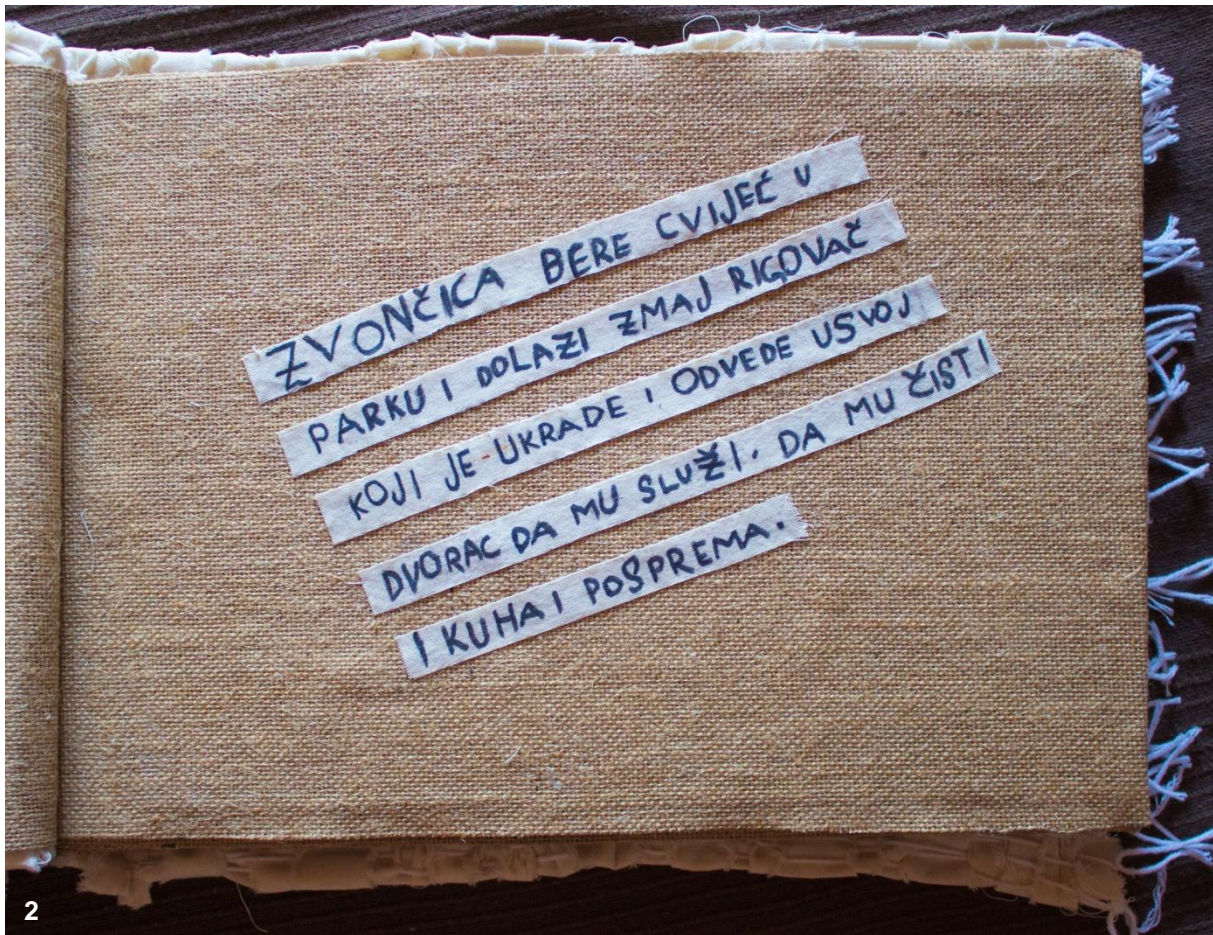 ZVONČICA BERE CVIJEĆ U
PARKU I DOLAZI ZMAJ RIGOVAČ
KOJI JE UKRADE I ODVEDE USVOJ
DVORAC DA MU SLUŽI. DA MU ČISTI
I KUHA I POSPREMA.
2